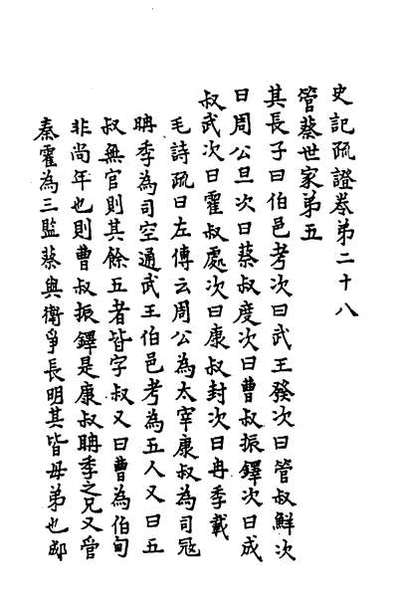 史記疏證卷第二十八
管蔡世家第五
其長子曰伯邑考次曰武王發次曰管叔鮮次
曰周公旦次曰蔡叔度次曰曹叔振鐸次曰成
叔武次曰霍叔處次曰康叔封次曰冉季載
毛詩疏曰左傳云周公為太宰康叔為司寇
聃季為司空通武王伯邑考為五人又曰五
叔無官則其餘五者皆字叔又曰曹為伯甸
非尚年也則曹叔振鐸是康叔聃季之兄又管
秦霍為三監蔡與衛爭長明其皆母弟也郕